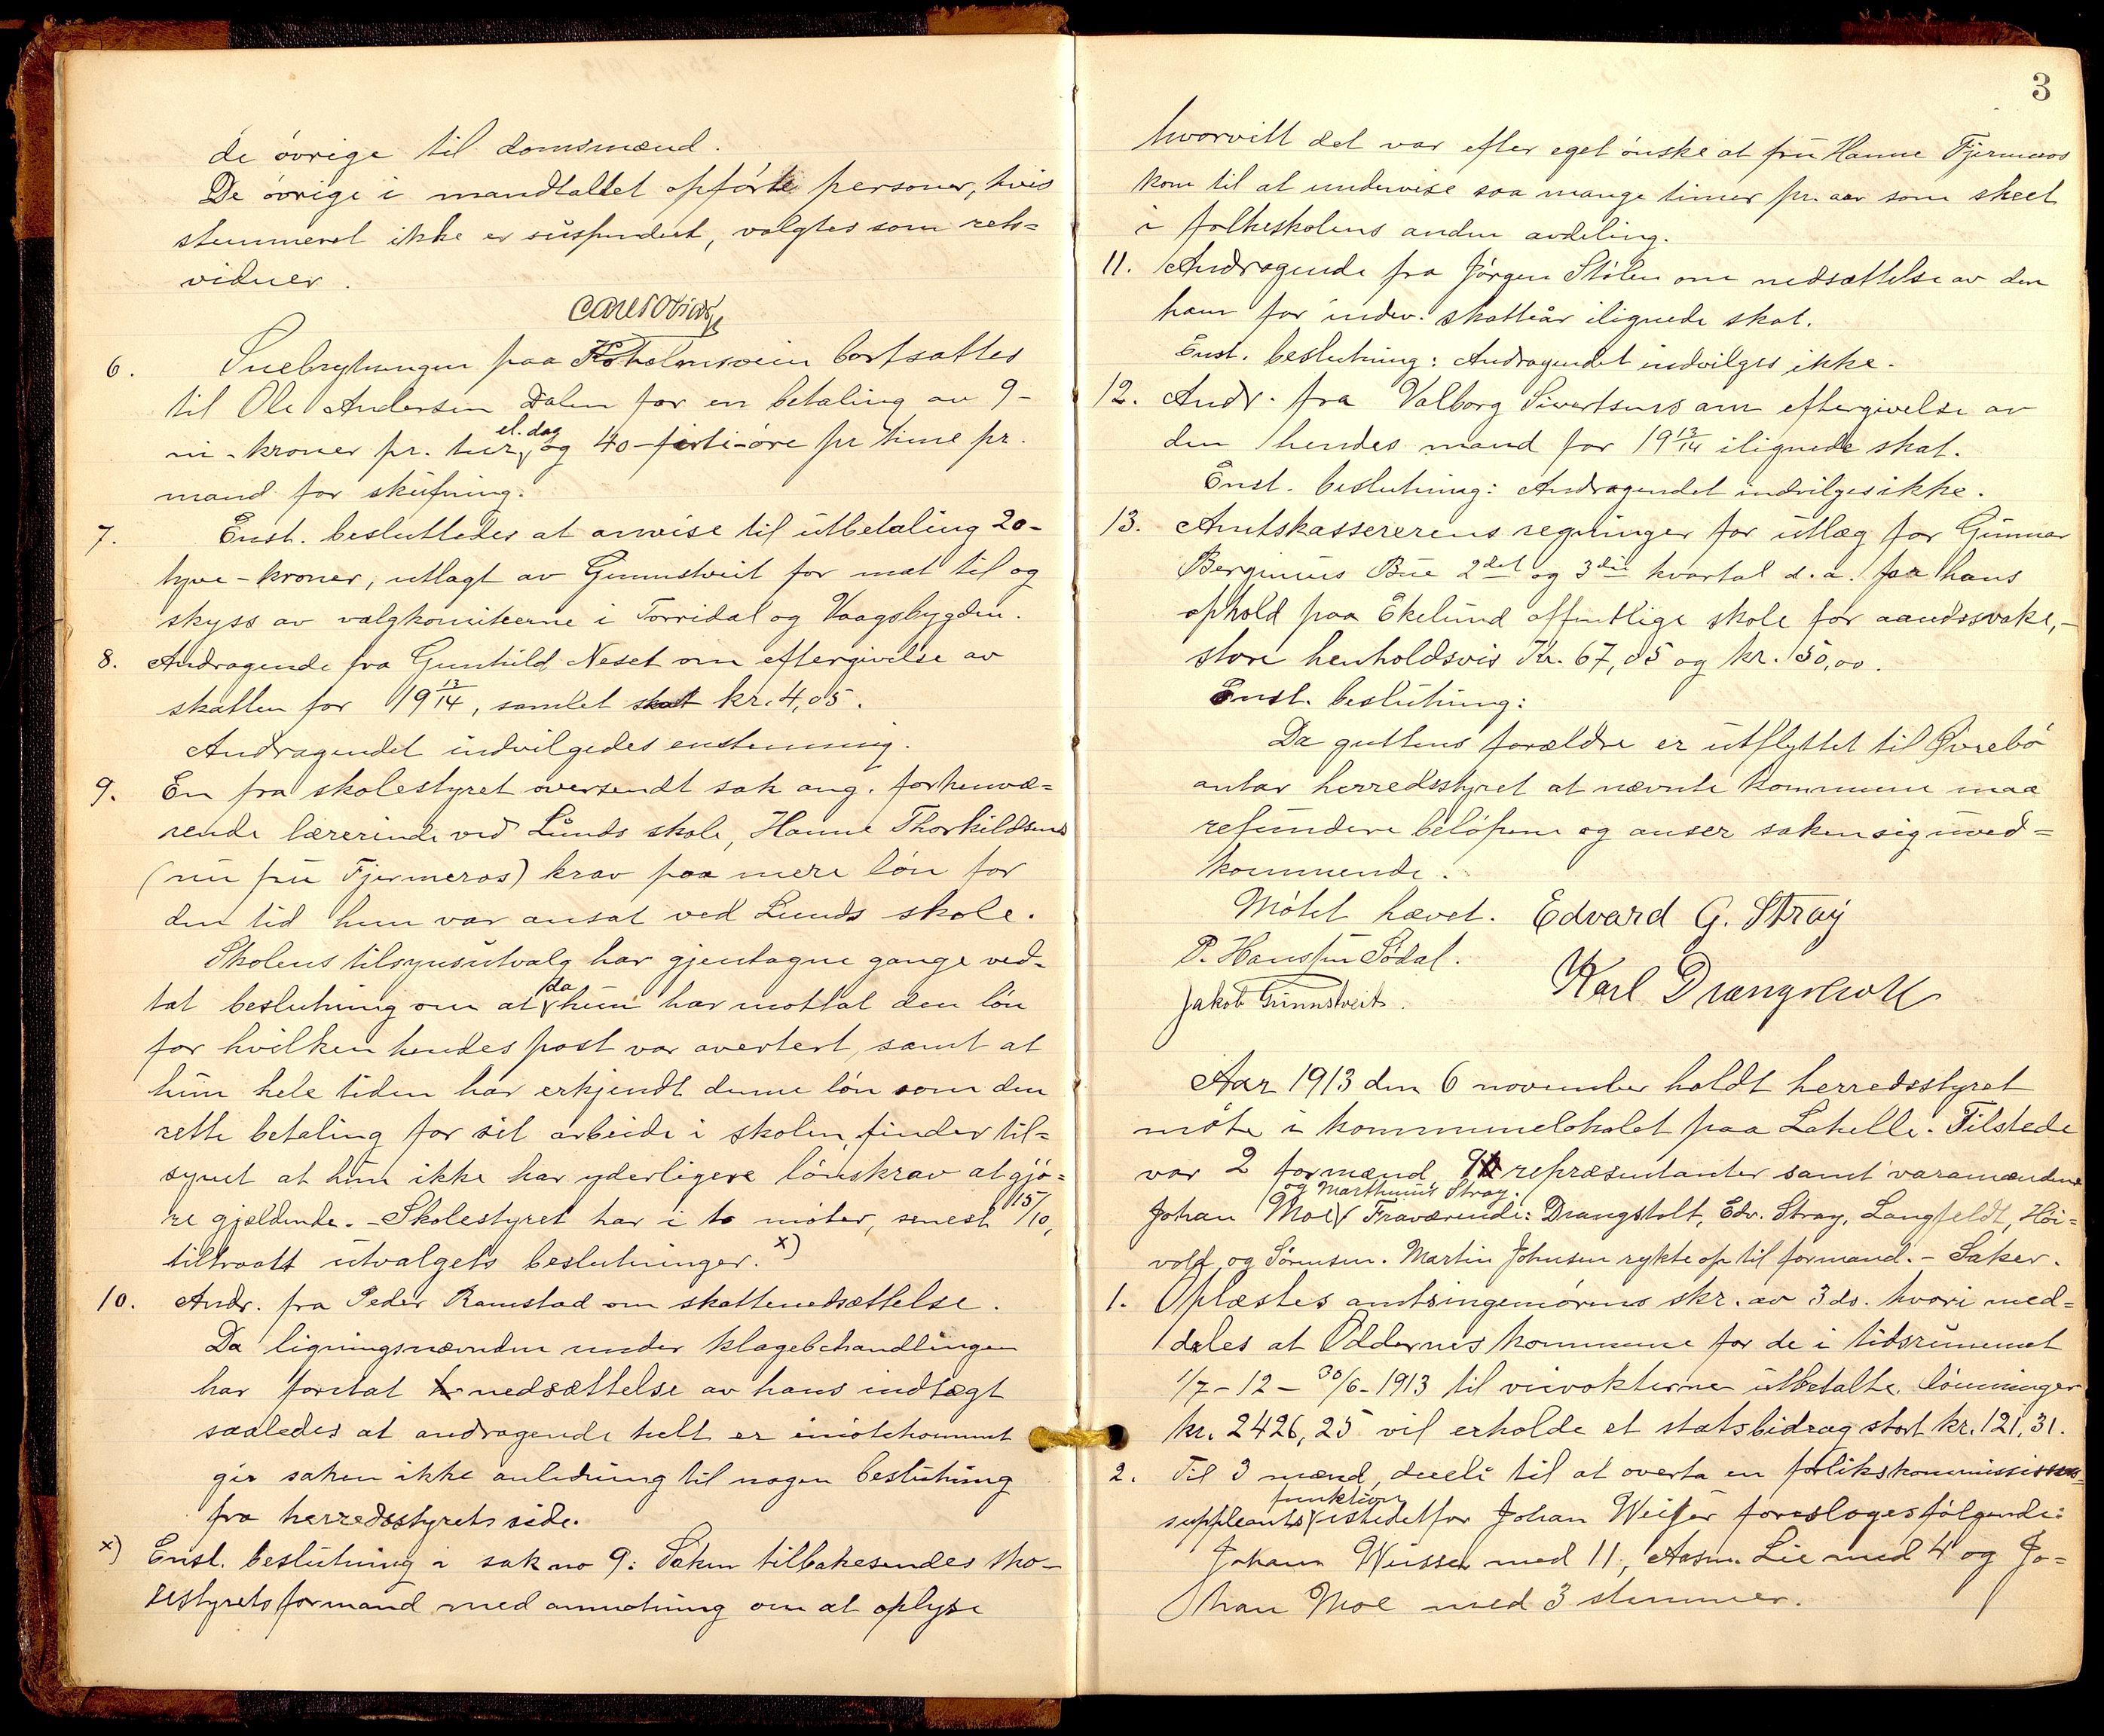 de övrige til domsmænd.
De övrige i mandtallet opförte personer, hvis
stemmeret ikke er suspendert, valgtes som rets-
vidner.
6. Snebrytningen paa bortsattes
til Ole Andersen Dalen for en betaling av 9-
ni-kroner pr. tur, el. dag og 40-firti-öre pr time pr.
mand for skufning.
7. Enst. besluttedes at anvise til utbetaling 20-
tyve-kroner, utlagt av Grimstveit for mat til og
skyss av valgkomiteerne i Torridal og Vaagsbygden.
8. Andragende fra Gunhild Neset om eftergivelse av
skatten for 19 13/14, samlet skat kr. 4,05.
Andragendet indvilgedes enstemmig.
9. En fra skolestyret oversendt sak ang. forhenvæ-
rende lærerinde ved Lunds skole, Hanne Thorkildsens
(nu fru Fjermeros) krav paa mere lön for
den tid hun var ansat ved Lunds skole.
Skolens tilsynsutvalg har gjentagne gange ved-
tat beslutning om at da hun har mottat den lön
for hvilken hendes post var avertert, samt at
hun hele tiden har erkjendt denne lön som den
rette betaling for sit arbeide i skolen, finder til-
synet at hun ikke har yderligere lönskrav at gjö-
re gjeldende. - Skolestyret har i to möter, senest 15/10,
tiltraatt utvalgets beslutninger. x)
10. Andr. fra Peder Ramstad om skattenedsættelse.
Da ligningsnævnden under klagebehandlingen
har foretat nedsættelse av hans indtægt
saaledes at andragende helt er imötekommet
gir saken ikke anledning til nogen beslutning
fra herredsstyrets side.
x) Enst. beslutning i sak no 9: Saken tilbakesendes sko-
lestyrets formand med anmotning om at oplyse
3
hvorvitt det var efter eget önske at fru Hanne Fjermeros
kom til at undervise saa mange timer pr. aar som skeet
i folkeskolens anden avdeling.
11. Andragende fra Jörgen Stölen om nedsættelse av den
ham for indev. skatteår ilignede skat.
Enst. beslutning: Andragendet indvilges ikke.
12. Andr. fra Valborg Sivertsens om eftergivelse av
den hendes mand for 19 13/14 ilignede skat.
Enst. beslutning: Andragendet indvilges ikke.
13. Amtskassererens regninger for utlæg for Gunnar
Berginius Bue 2det og 3die kvartal d. a. for hans
ophold paa Ekelund offentlige skole for aandssvake,-
store henholdsvis Kr. 67,05 og kr. 50,00.
Enst. beslutning:
Da guttens forældre er utflyttet til Øvrebö
antar herredsstyret at nævnte kommune maa
refundere belöpene og anser saken sig uved-
kommende.
Mötet hævet. Edvard G. Stray
P. Hanssen Södal.
Jakob Grimstveit. Karl Drangsholt
Aar 1913 den 6 november holdt herredsstyret
möte i kommunelokalet paa Lahelle. Tilstede
var 2 formænd 9 repræsentanter samt varamændene
Johan Moe og Marthinus Stray. Fraværende: Drangsholt, Edv. Stray, Langfeldt, Höi-
vold og Sörensen. Martin Johnsen rykte op til formand. - Saker.
1. Oplæstes amtsingeniörens skr. av 3 ds. hvori med-
deles at Oddernes kommune for de i tidsrummet
1/7-12 - 30/6-1913 til veivokterne utbetalte lönninger
kr. 2426,25 vil erholde et statsbidrag stort kr. 121,31.
2. Til 3 mænd, duelige til at overta en forlikskommissions-
suppleants funktion istedetfor Johan foresloges fölgende:
Johan med 11, Aasm. Lie med 4 og Jo-
han Moe med 3 stemmer.